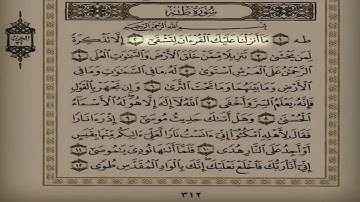 سورة طه
بسم الله الرحمن الرحيم
طه ١ ما أنزلنا عليك القرءان لتشقى ٢ إلا تذكرة
لمن يخشى ٣ تنزيلا ممن خلق الأرض والسموات العلى ٤
الرحمن على العرش استوى ٥ له ما في السموت وما في
الأرض وما بينهما وما تحت الثرى ٦ وإن تجهر بالقول
فإنه يعلم السر وأخفى ٧ الله لا إله إلا هو له الأسماء
الحسنى ٨ وهل أتىك حديث موسى ٩ إذ رءا نارا
فقال لأهله امكثوا إني ءانست نارا لعلي ءاتيكم منها بقبس
أو أجد على النار هدى ١٠ فلما أتىها نودي يموسى ١١
إني أنا ربك فاخلع نعليك إنك بالواد المقدس طوى ١٢
٣١٢